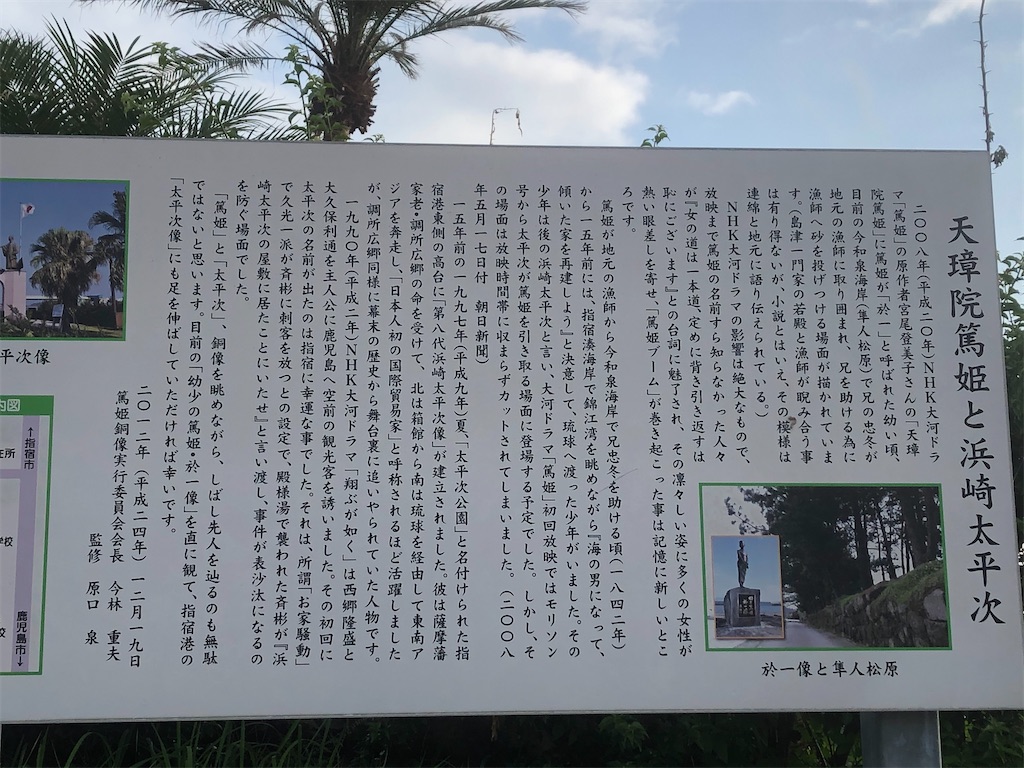 天璋院篤姫と浜崎太平次
二〇〇八年（平成二〇年）ＮＨＫ大河ドラ
マ「篤姫」の原作者宮尾登美子さんの「天璋
院篤姫」に篤姫が「於一」と呼ばれた幼い頃、
目前の今和泉海岸（隼人松原）で兄の忠冬が
地元の漁師に取り囲まれ、兄を助ける為に
漁師へ砂を投げつける場面が描かれていま
す。（島津一門家の若殿と漁師が睨み合う事
は有り得ないが、小説とはいえ、その模様は
連綿と地元に語り伝えられている。）
ＮＨＫ大河ドラマの影響は絶大なもので、
放映まで篤姫の名前すら知らなかった人々
が『女の道は一本道、定めに背き引き返すは
恥にございます』との台詞に魅了され、その凛々しい姿に多くの女性が
熱い眼差しを寄せ、「篤姫ブーム」が巻き起こった事は記憶に新しいとこ
ろです。
篤姫が地元の漁師から今和泉海岸で兄忠冬を助ける頃（一八四二年）
から一五年前には、指宿湊海岸で錦江湾を眺めながら『海の男になって、
傾いた家を再建しよう』と決意して、琉球へ渡った少年がいました。その
少年は後の浜崎太平次と言い、大河ドラマ「篤姫」初回放映ではモリソン
号から太平次が篤姫を引き取る場面に登場する予定でした。しかし、そ
の場面は放映時間帯に収まらずカットされてしまいました。（二〇〇八
年五月一七日付　朝日新聞）
一五年前の一九九七年（平成九年）夏、「太平次公園」と名付けられた指
宿港東側の高台に「第八代浜崎太平次像」が建立されました。彼は薩摩藩
家老・調所広郷の命を受けて、北は箱館から南は琉球を経由して東南ア
ジアを奔走し、「日本人初の国際貿易家」と呼称されるほど活躍しました
が、調所広郷同様に幕末の歴史から舞台裏に追いやられていた人物です。
一九九〇年（平成二年）ＮＨＫ大河ドラマ「翔ぶが如く」は西郷隆盛と
大久保利通を主人公に鹿児島へ空前の観光客を誘いました。その初回に
太平次の名前が出たのは指宿に幸運な事でした。それは、所謂「お家騒動」
で久光一派が斉彬に刺客を放つとの設定で、殿様湯で襲われた斉彬が『浜
崎太平次の屋敷に居たことにいたせ』と言い渡し、事件が表沙汰になるの
を防ぐ場面でした。
「篤姫」と「太平次」、銅像を眺めながら、しばし先人を辿るのも無駄
ではないと思います。目前の「幼少の篤姫・於一像」を直に観て、指宿港の
「太平次像」にも足を伸ばしていただければ幸いです。
二〇一二年（平成二四年）一二月一九日
篤姫銅像実行委員会会長　今林　重夫
監修　原口　泉
於一像と隼人松原
平次像
内図
↑指宿市
在所
学校
校
鹿児島市↓